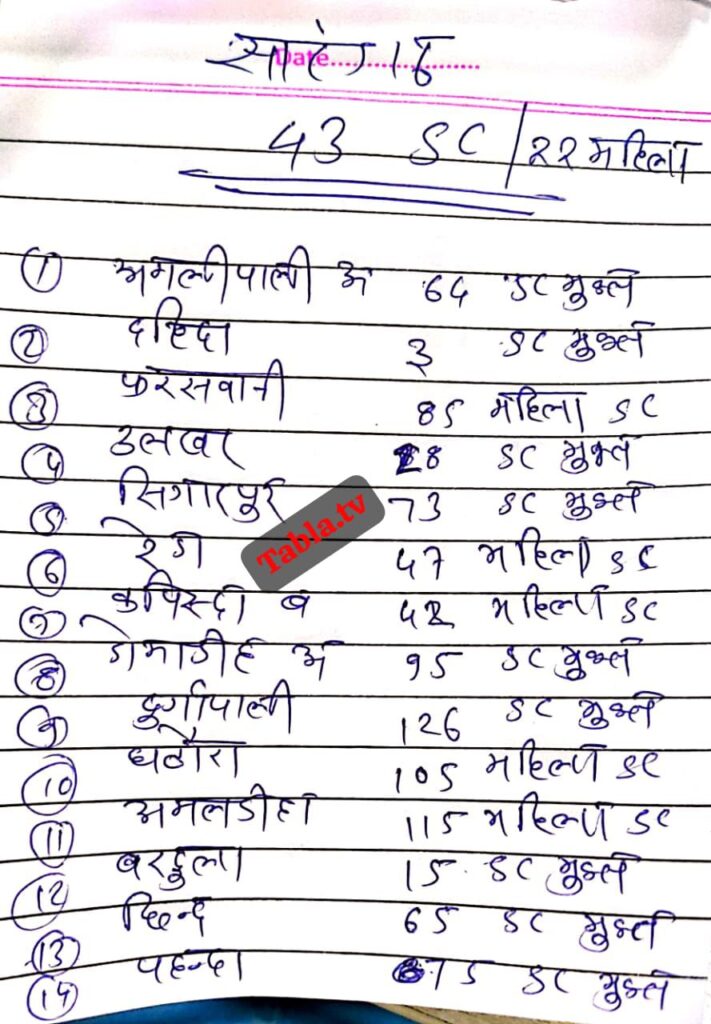 सारंगढ़
Date
43 SC / 22 महिला
1 अमलीपाली अ 64 SC मुक्त
2 दहिदा 3 SC मुक्त
3 फरसवानी 85 महिला SC
4 उलखर 28 SC मुक्त
5 सिंगारपुर 73 SC मुक्त
6 रेडा 47 महिला SC
7 कपिस्दा ब 42 महिला SC
8 डोमाडीह अ 95 SC मुक्त
9 दुर्गापाली 126 SC मुक्त
10 घठोरा 105 महिला SC
11 अमलडीहा 115 महिला SC
12 बरदुला 15 SC मुक्त
13 छिन्द 65 SC मुक्त
14 पहन्दा 75 SC मुक्त
Tabla.tv